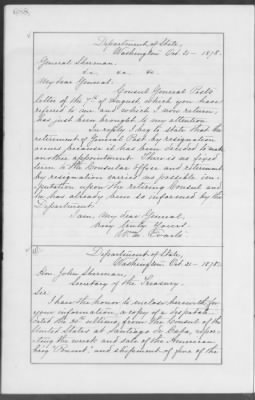 Department of State,
Washington Oct. 21 - 1878.
General Sherman.
&c. &c. &c.
My dear General:
Consul General Post's
letter of the 7th of August, which you have
referred to me and which I now return,
has just been brought to my attention.
In reply I beg to state that the
retirement of General Post by resignation
arises because it has been decided to make
another appointment. There is no fixed
term to the Consular office and retirement
by resignation carries as possible no
imputation upon the retiring Consul and
he has already been so informed by the
Department.
I am, My dear General,
Very truly Yours
Wm. M. Evarts.
Department of State,
Washington, Oct. 21 - 1878.
Hon. John Sherman,
Secretary of the Treasury.
Sir:
I have the honor to enclose herewith for
your information, a copy of a despatch
dated the 30th ultimo, from the Consul of the
United States at Santiago de Cuba, repor-
ting the wreck and sale of the American
brig and shipment of five of the